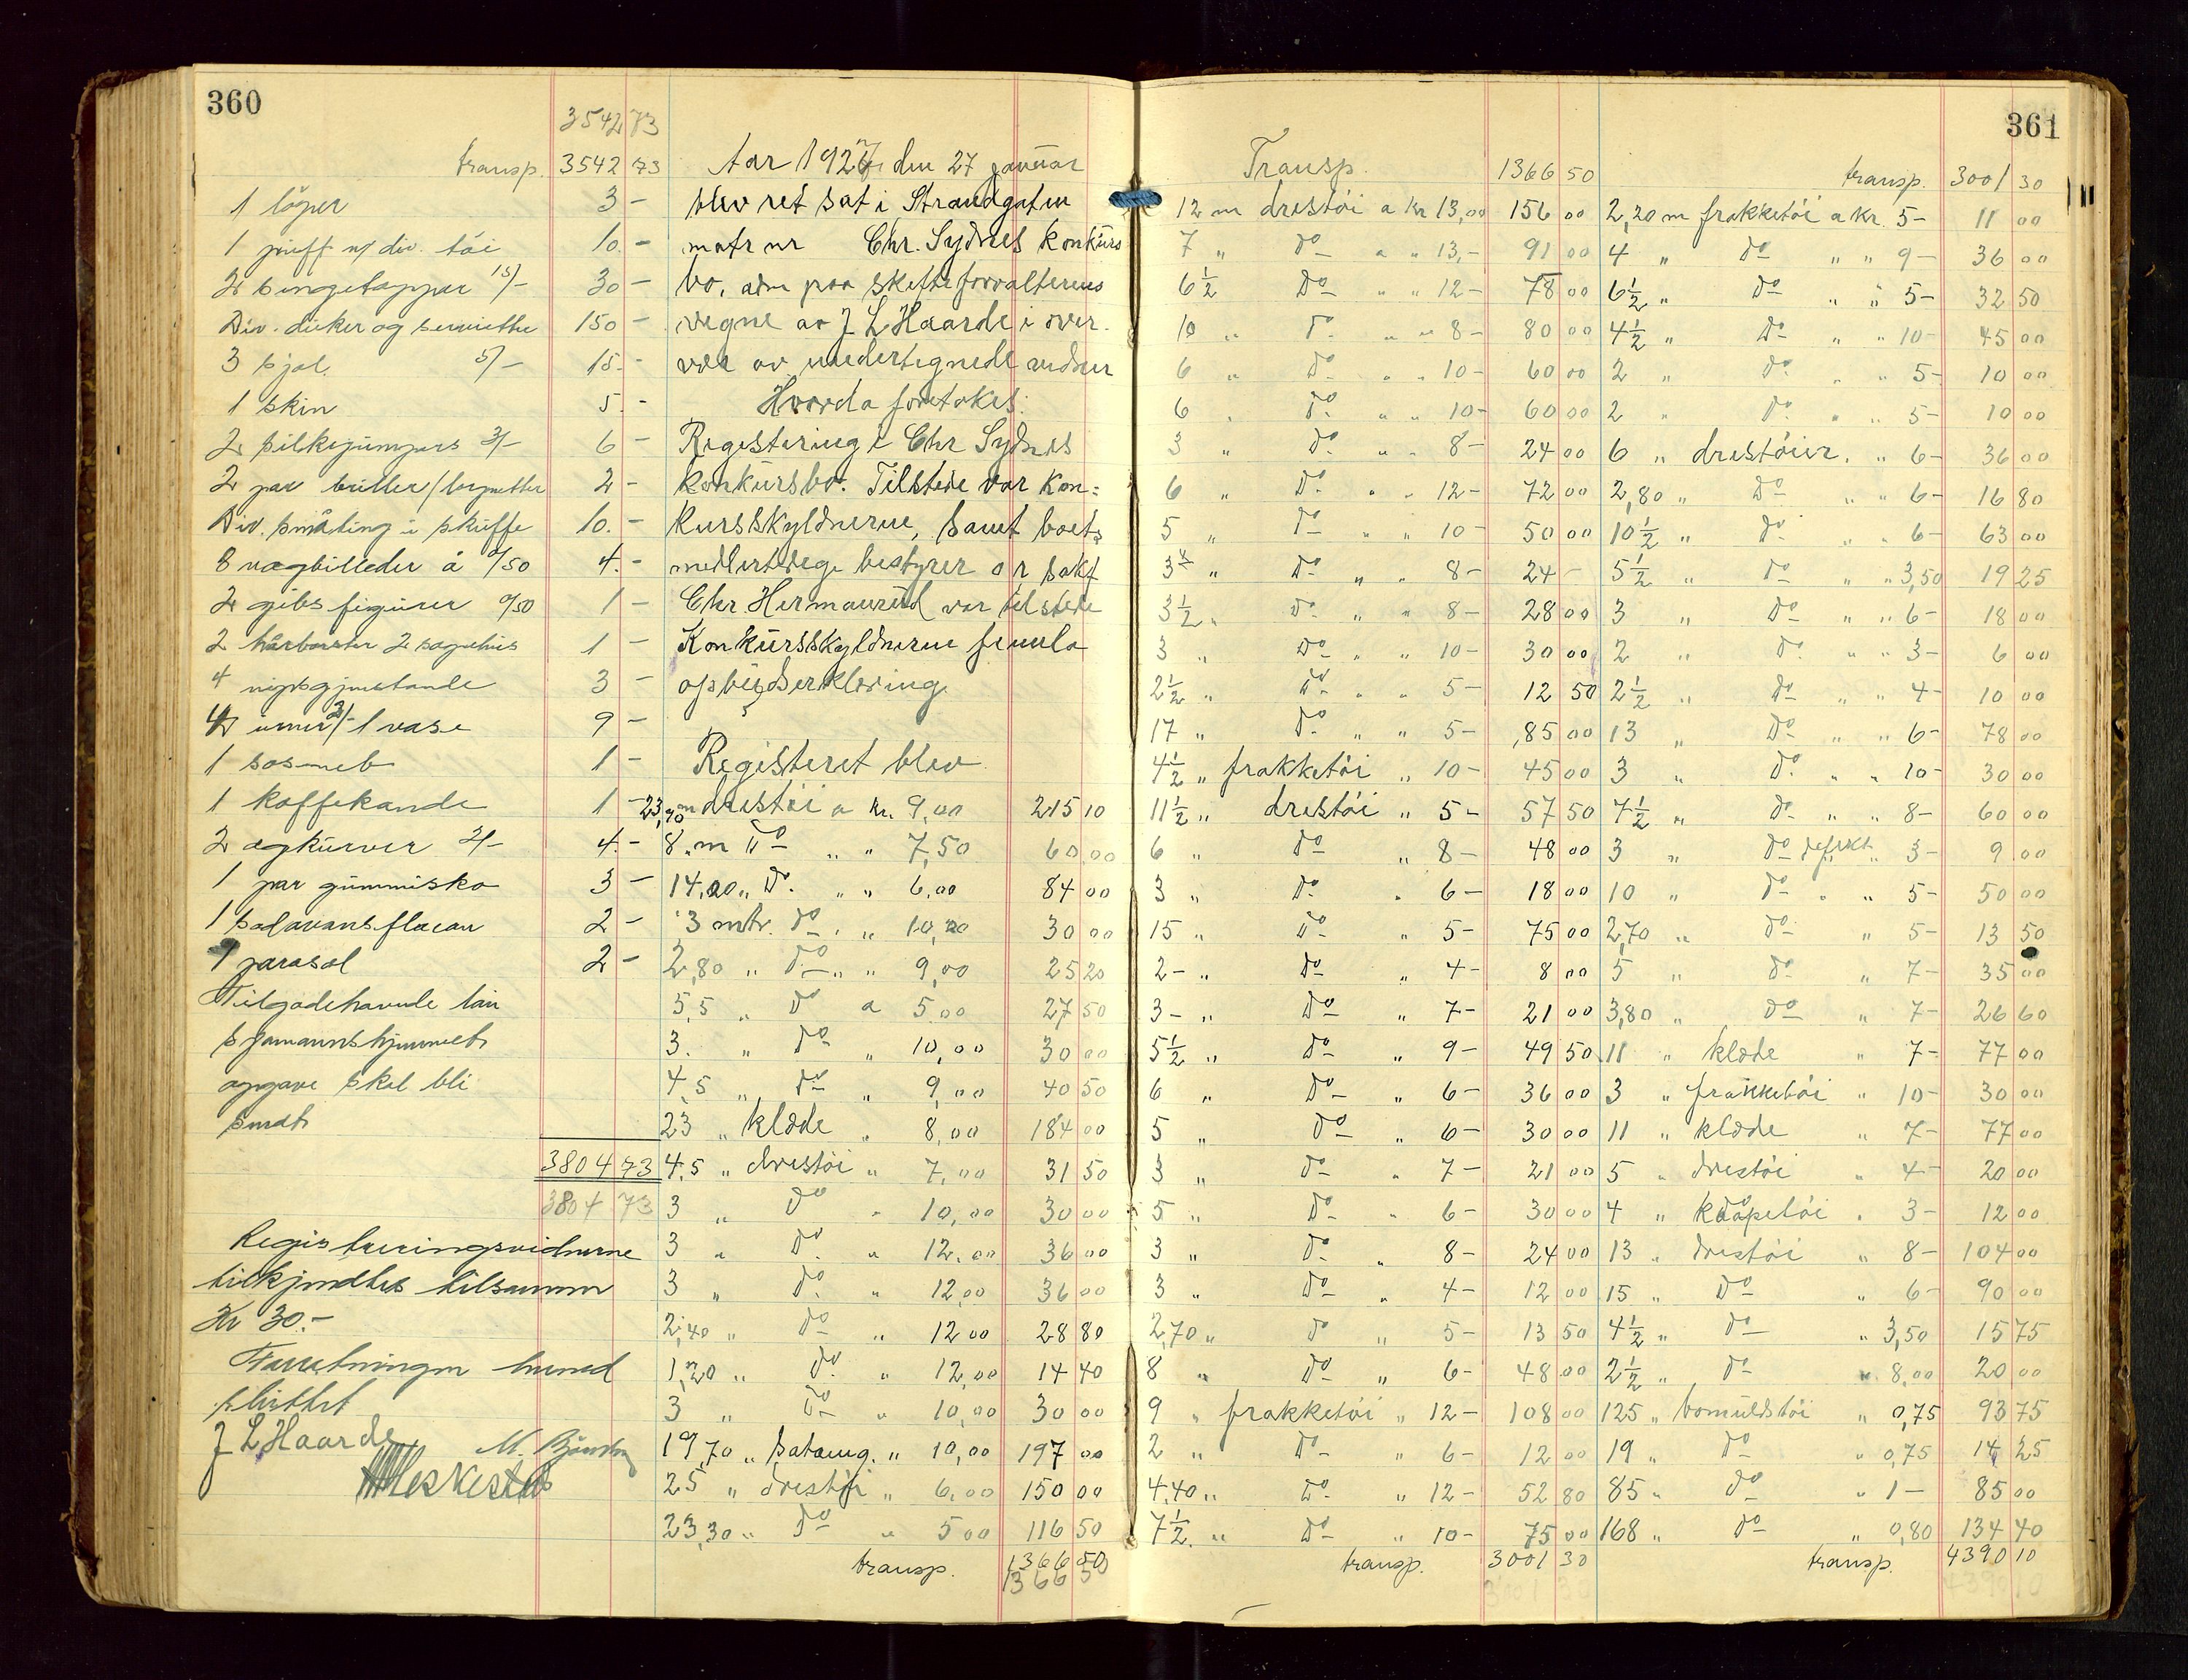 360
3542 73
transp. 3542 73
1 löper 3 -
1 m/ div. töi 10. -
2 sengetepper 15/- 30 -
Div. duker og servietter 150 -
3 sjal. 5/- 15. -
1 skin 5. -
2 silkejumpers 3/- 6 -
2 par briller/lorgnetter 2 -
Div. småting i skuffe 10. -
8 vægbilleder á 0/50 4. -
2 gibs figurer 0/50 1 -
2 hårbørster 2 sapehus 1 -
4 nipsgjenstande 3 -
4 urner 2/- 1 vase 9 -
1 1 -
1 kaffekande 1 -
2 ægkurver 2/- 4. -
1 par gummisko 3 -
1 flacon 2 -
1 parasol 2 -
Tilgodehavende lån
sjømannshjemmets
opgave skal bli
sendt
3804 73
3804 73
Registreringsvidnerne
tilkjendtes tilsammen
Kr 30.-
Forretningen hermed
sluttet
J L Haarde M.
Aar 1927 den 27 januar
blev ret sat i Strandgaten
matr nr Chr. Sydnes konkurs
bo, adm paa skifteforvalterens
vegne av J L Haarde i over-
vær av undertegnede vidner
Hvorda foretokes:
Registering i Chr Sydnes
konkursbo. Tilstede var Kon=
kursskyldnerne, samt boets
medlertidige bestyrer o r sakf
Chr. Hermanrud var tilstede
Konkursskyldnerne
opbudserklæring.
Registeret blev
23,90 m drestöi a kr. 9,00 215 10
8 " m Do " " 7,50 60,00
14,00 " Do. " " 6,00 84 00
3 mtr. do " " 10,00 30 00
2,80 " Do " " 9,00 25 20
5,5 " Do a 5,00 27 50
3. " Do " 10,00 30 00
4,5 " Do " 9,00 40 50
23 " klæde " 8,00 184 00
4,5 " drestöi " 7,00 31 50
3 " Do " 10,00 30 00
3 " Do. " 12,00 36 00
3 " Do. " 12,00 36 00
2,40 " Do " 12 00 28 80
1,20 " Do. " 12,00 14 40
3 " Do " 10,00 30 00
19,70 " " 10,00 197 00
25 " drestöi " 6,00 150 00
23,30 " Do " 5 00 116 50
transp. 1366 50
1366 5
361
Transp. 1366 50
12 m drestöi a kr 13,00 156 00
7 " Do " " 13,- 91 00
6½ Do " " 12- 78 00
10 " Do " " 8- 80 00
6 " Do " " 10- 60 00
6 " Do " " 10- 60 00
3 " Do " " 8- 24 00
6 " Do " " 12- 72 00
5 " Do " " 10- 50 00
3 " Do " " 8- 24 -
3½ " Do " " 8- 28 00
3 " Do " " 10- 30 00
2½ " Do " " 5- 12 50
17 " Do " " 5- 85 00
4½ " frakketöi " 10- 45 00
11½ " drestöi " 5- 57 50
6 " Do " 8- 48 00
3 " Do " 6- 18 00
15 " Do " 5- 75 00
2- " Do " 4- 8 00
3- " Do " 7- 21 00
5½ " Do " 9- 49 50
6 " Do " 6- 36 00
5 " Do " 6- 30 00
3 " Do " 7- 21 00
5 " Do " 6- 30 00
3 " Do " 8- 24 00
3 " Do " 4- 12 00
2,70 " Do " 5- 13 50
8 " Do " 6- 48 00
9 " frakketöi " 12- 108 00
2 " Do " 6- 12 00
4,40 " Do " 12- 52 80
7½ " Do " 10- 75 00
transp. 3001 30
3001 30
transp. 3001 30
2,20 m frakketöi a kr. 5- 11 00
4 " Do " " 9- 36 00
6½ " Do " " 5- 32 50
4½ " Do " " 10- 45 00
2 " Do " " 5- 10 00
2 " Do " " 5- 10 00
6 " drestöier. " 6- 36 00
2,80 " Do " " 6- 16 80
10½ " Do " " 6- 63 00
5½ " Do " " 3,50 19 25
3 " Do " " 6- 18 00
2 " Do " " 3- 6 00
2½ " Do " " 4- 10 00
13 " Do " " 6- 78 00
3 " Do " " 10- 30 00
7½ " Do " " 8- 60 00
3 " Do defekt " 3- 9 00
10 " Do " " 5- 50 00
2,70 " Do " 5- 13 50
5 " Do " 7- 35 00
3,80 " Do " 7- 26 60
11 " klæde " 7- 77 00
3 " frakketöi " 10- 30 00
11 " klæde " 7- 77 00
5 " drestöi " 4- 20 00
4 " kåpetöi " 3- 12 00
13 " drestöi " 8- 104 00
15 " Do " 6- 90 00
4½ " Do " 3,50 15 75
2½ " Do " 8,00 20 00
125 " bomuldstöi " 0,75 93 75
19 " Do " 0,75 14 25
85 " Do " 1 - 85 00
168 " Do " 0,80 134 40
transp. 4390 10
4390 10